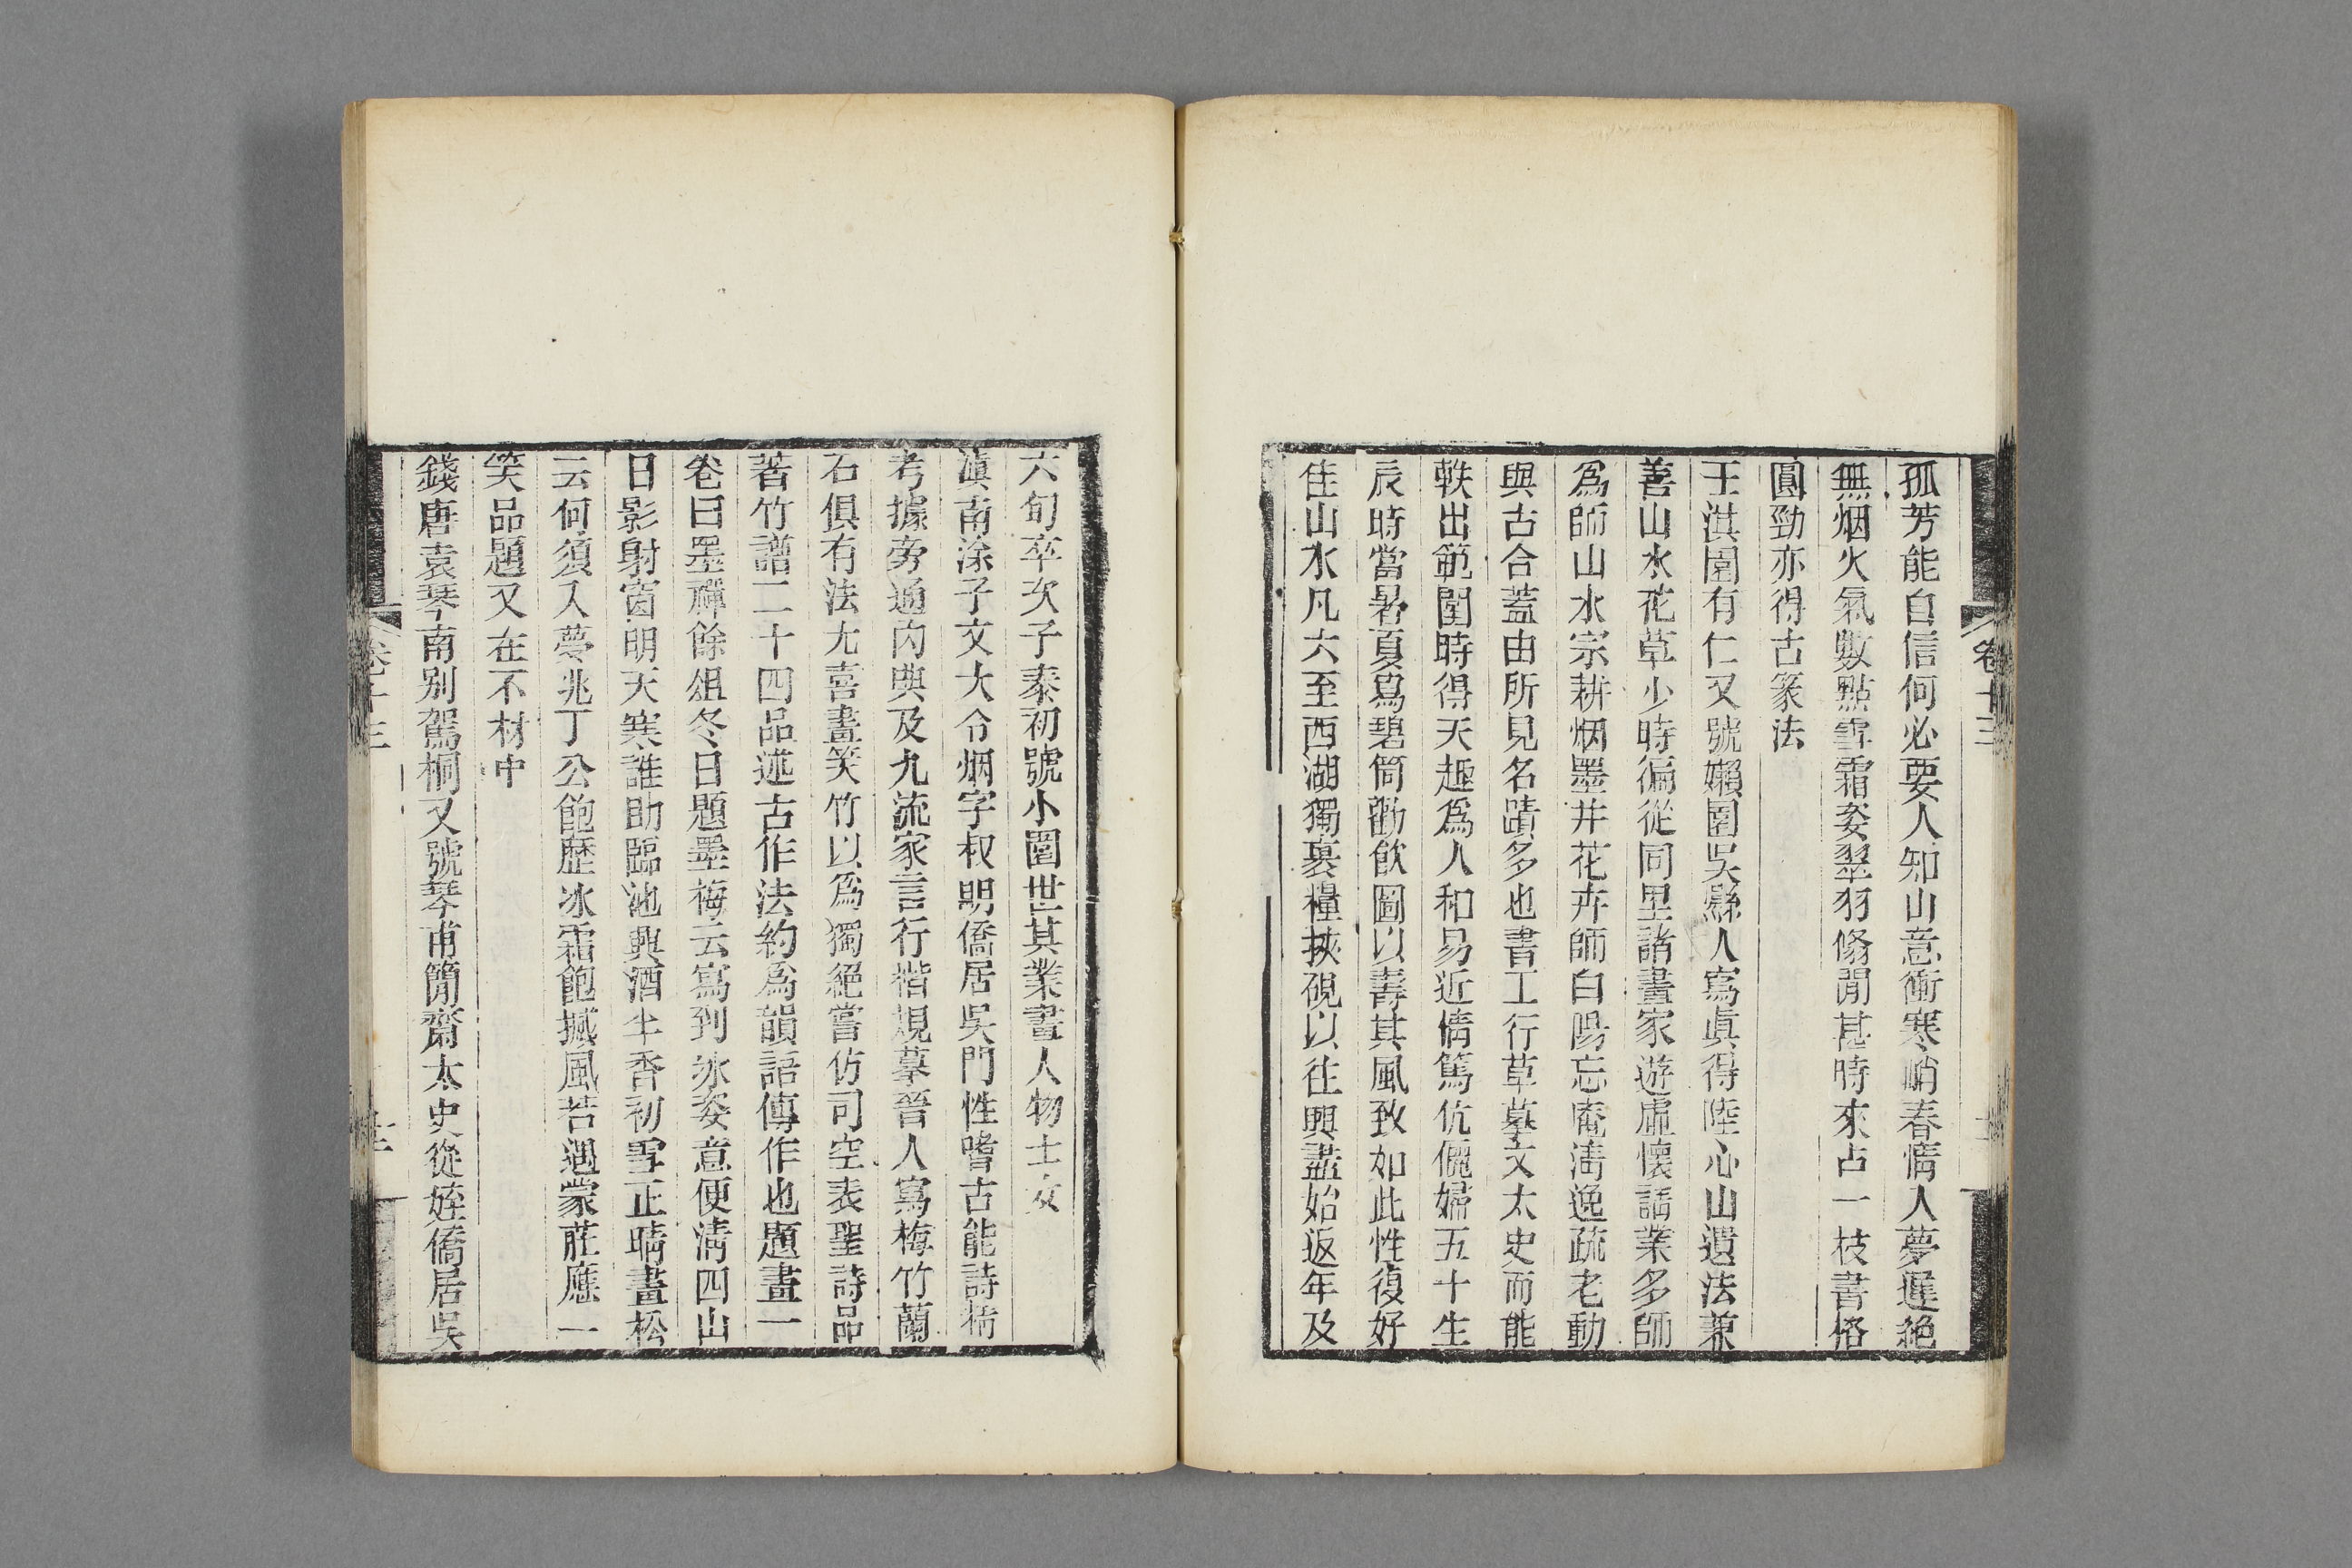 孤芳能自信何必要人知山意衝寒峭春情人夢遲絕
無烟火氣數點雪霜姿翠羽翛閒甚時來占一枝書俗
圓勁亦得古篆法
王淇園有仁又號嬾園吳縣人寫眞得陸心山遺法兼
善山水花草少時徧從同里諸畫家遊虛懷講業多師
爲師山水宗耕烟墨井花卉師白陽忘庵淸逸疏老動
與古合蓋由所見名蹟多也書工行草摹文太史而能
軼出範圍時得天趣爲人和易近情篤伉儷婦五十生
辰時當暑夏爲碧筒勸飮圖以壽其風致如此性復好
佳山水凡六至西湖獨裹糧挾硯以往興盡始返年及
卷十三
六旬卒次子泰初號小園世其業畫人物士女
滇南涂子文大令烟字叔明僑居吳門性嗜古能詩精
考據旁通內典及九流家言行楷規摹晉人寫梅竹蘭
石俱有法尤喜畫笑竹以爲獨絕嘗仿司空表聖詩品
著竹譜二十四品述古作法約爲韻語傳作也題畫一
卷曰墨禪餘俎冬日題墨梅云寫到冰姿意便淸四山
日影射窗明天寒誰助臨池興酒半香初雪正晴畫松
云何須入夢兆丁公飽歷冰霜飽撼風若遇蒙莊應一
笑品題又在不材中
錢唐袁琴南別駕桐又號琴甫簡齋太史從姪僑居吳
卷十三